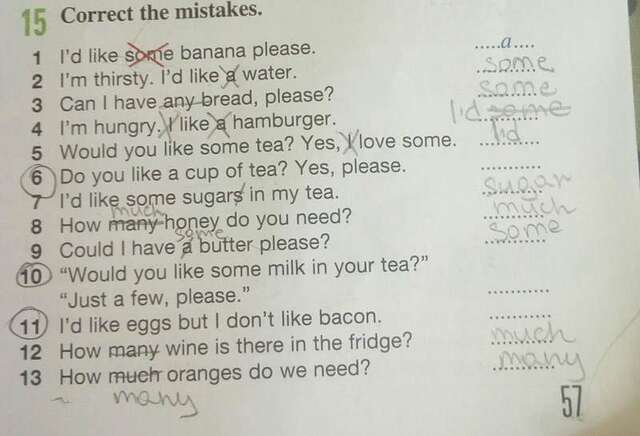 15 Correct the mistakes.
1 I'd like some banana please. .....a....
2 I'm thirsty. I'd like a water. some
3 Can I have any bread, please? some
4 I'm hungry, I like a hamburger. I'd some
5 Would you like some tea? Yes, I love some. I'd
6 Do you like a cup of tea? Yes, please. ...........
7 I'd like some sugars in my tea. sugar
much
8 How many honey do you need? much
some
9 Could I have a butter please? some
10 “Would you like some milk in your tea?”
“Just a few, please.” ...........
11 I'd like eggs but I don't like bacon. ...........
12 How many wine is there in the fridge? much
13 How much oranges do we need? many
many
57